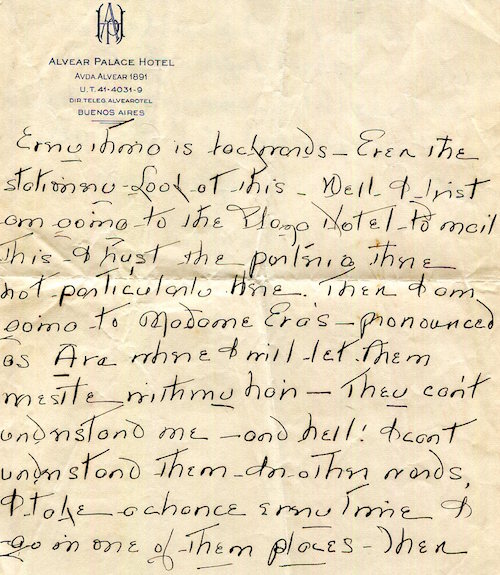 ALVEAR PALACE HOTEL
AVDA. ALVEAR 1891
U. T. 41-4031-9
DIR. TELEG. ALVEAROTEL
BUENOS AIRES
Everything is backwards - Even the
stationery - Look at this - Well I just
am going to the Plaza Hotel - to mail
this - I trust the porteria there
not particularly here. Then I am
going to Madame Eva's - pronounced
as Ava where I will let them
wrestle with my hair - They can't
understand me - and hell! I can't
understand them - In other words,
I take a chance every time I
go in one of them places - Then